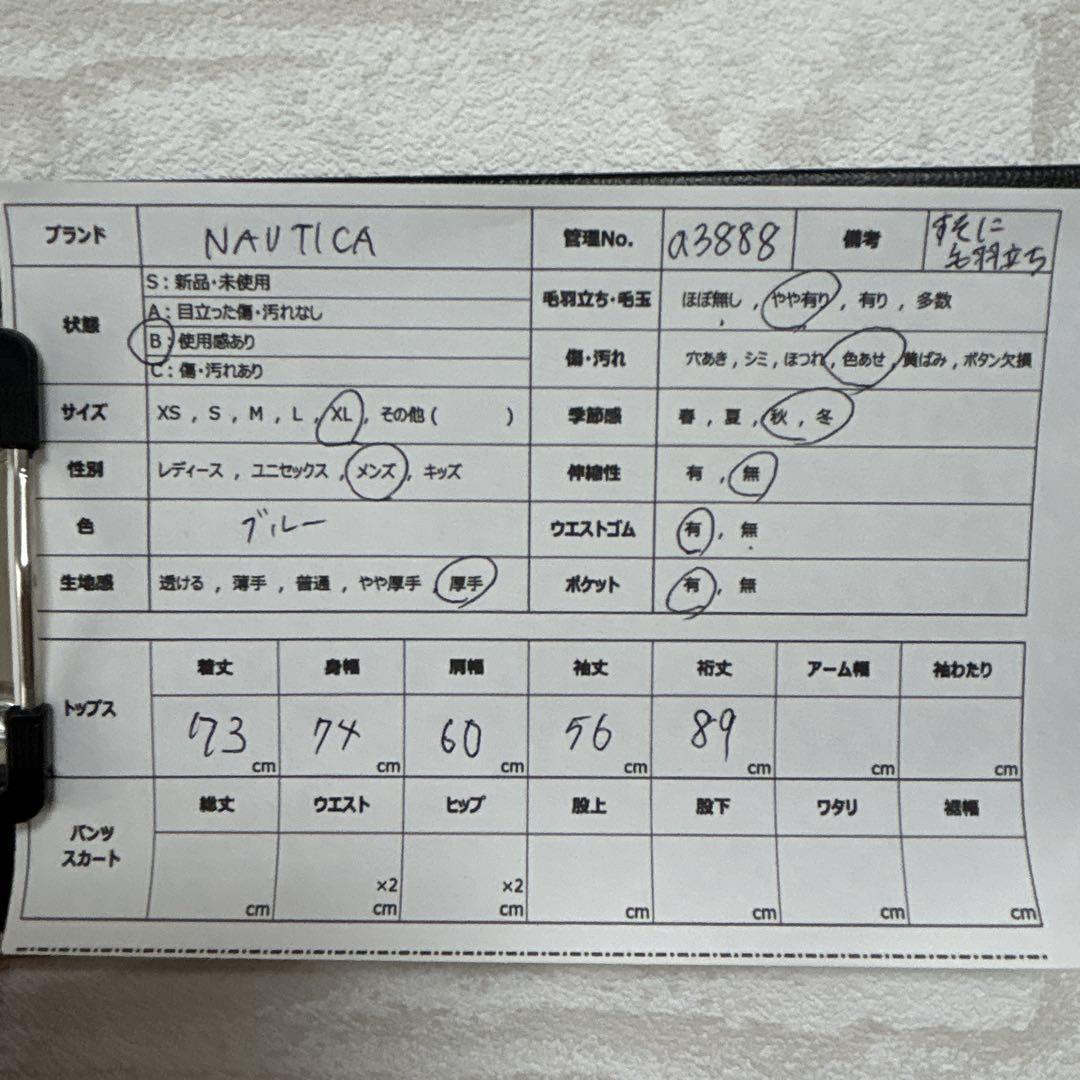 ブランド NAUTICA 管理No. a3888 備考 すそに
毛羽立ち
状態 S：新品・未使用
A：目立った傷・汚れなし
B：使用感あり
C：傷・汚れあり
毛羽立ち・毛玉 ほぼ無し , やや有り , 有り , 多数
傷・汚れ 穴あき , シミ , ほつれ , 色あせ , 黄ばみ , ボタン欠損
サイズ XS , S , M , L , XL , その他 ( ) 季節感 春 , 夏 , 秋 , 冬
性別 レディース , ユニセックス , メンズ , キッズ 伸縮性 有 , 無
色 ブルー ウエストゴム 有 , 無
生地感 透ける , 薄手 , 普通 , やや厚手 , 厚手 ポケット 有 , 無
トップス 着丈 身幅 肩幅 袖丈 裄丈 アーム幅 袖わたり
73 cm 74 cm 60 cm 56 cm 89 cm cm cm
パンツ
スカート
総丈 ウエスト ヒップ 股上 股下 ワタリ 裾幅
×2 ×2
cm cm cm cm cm cm cm